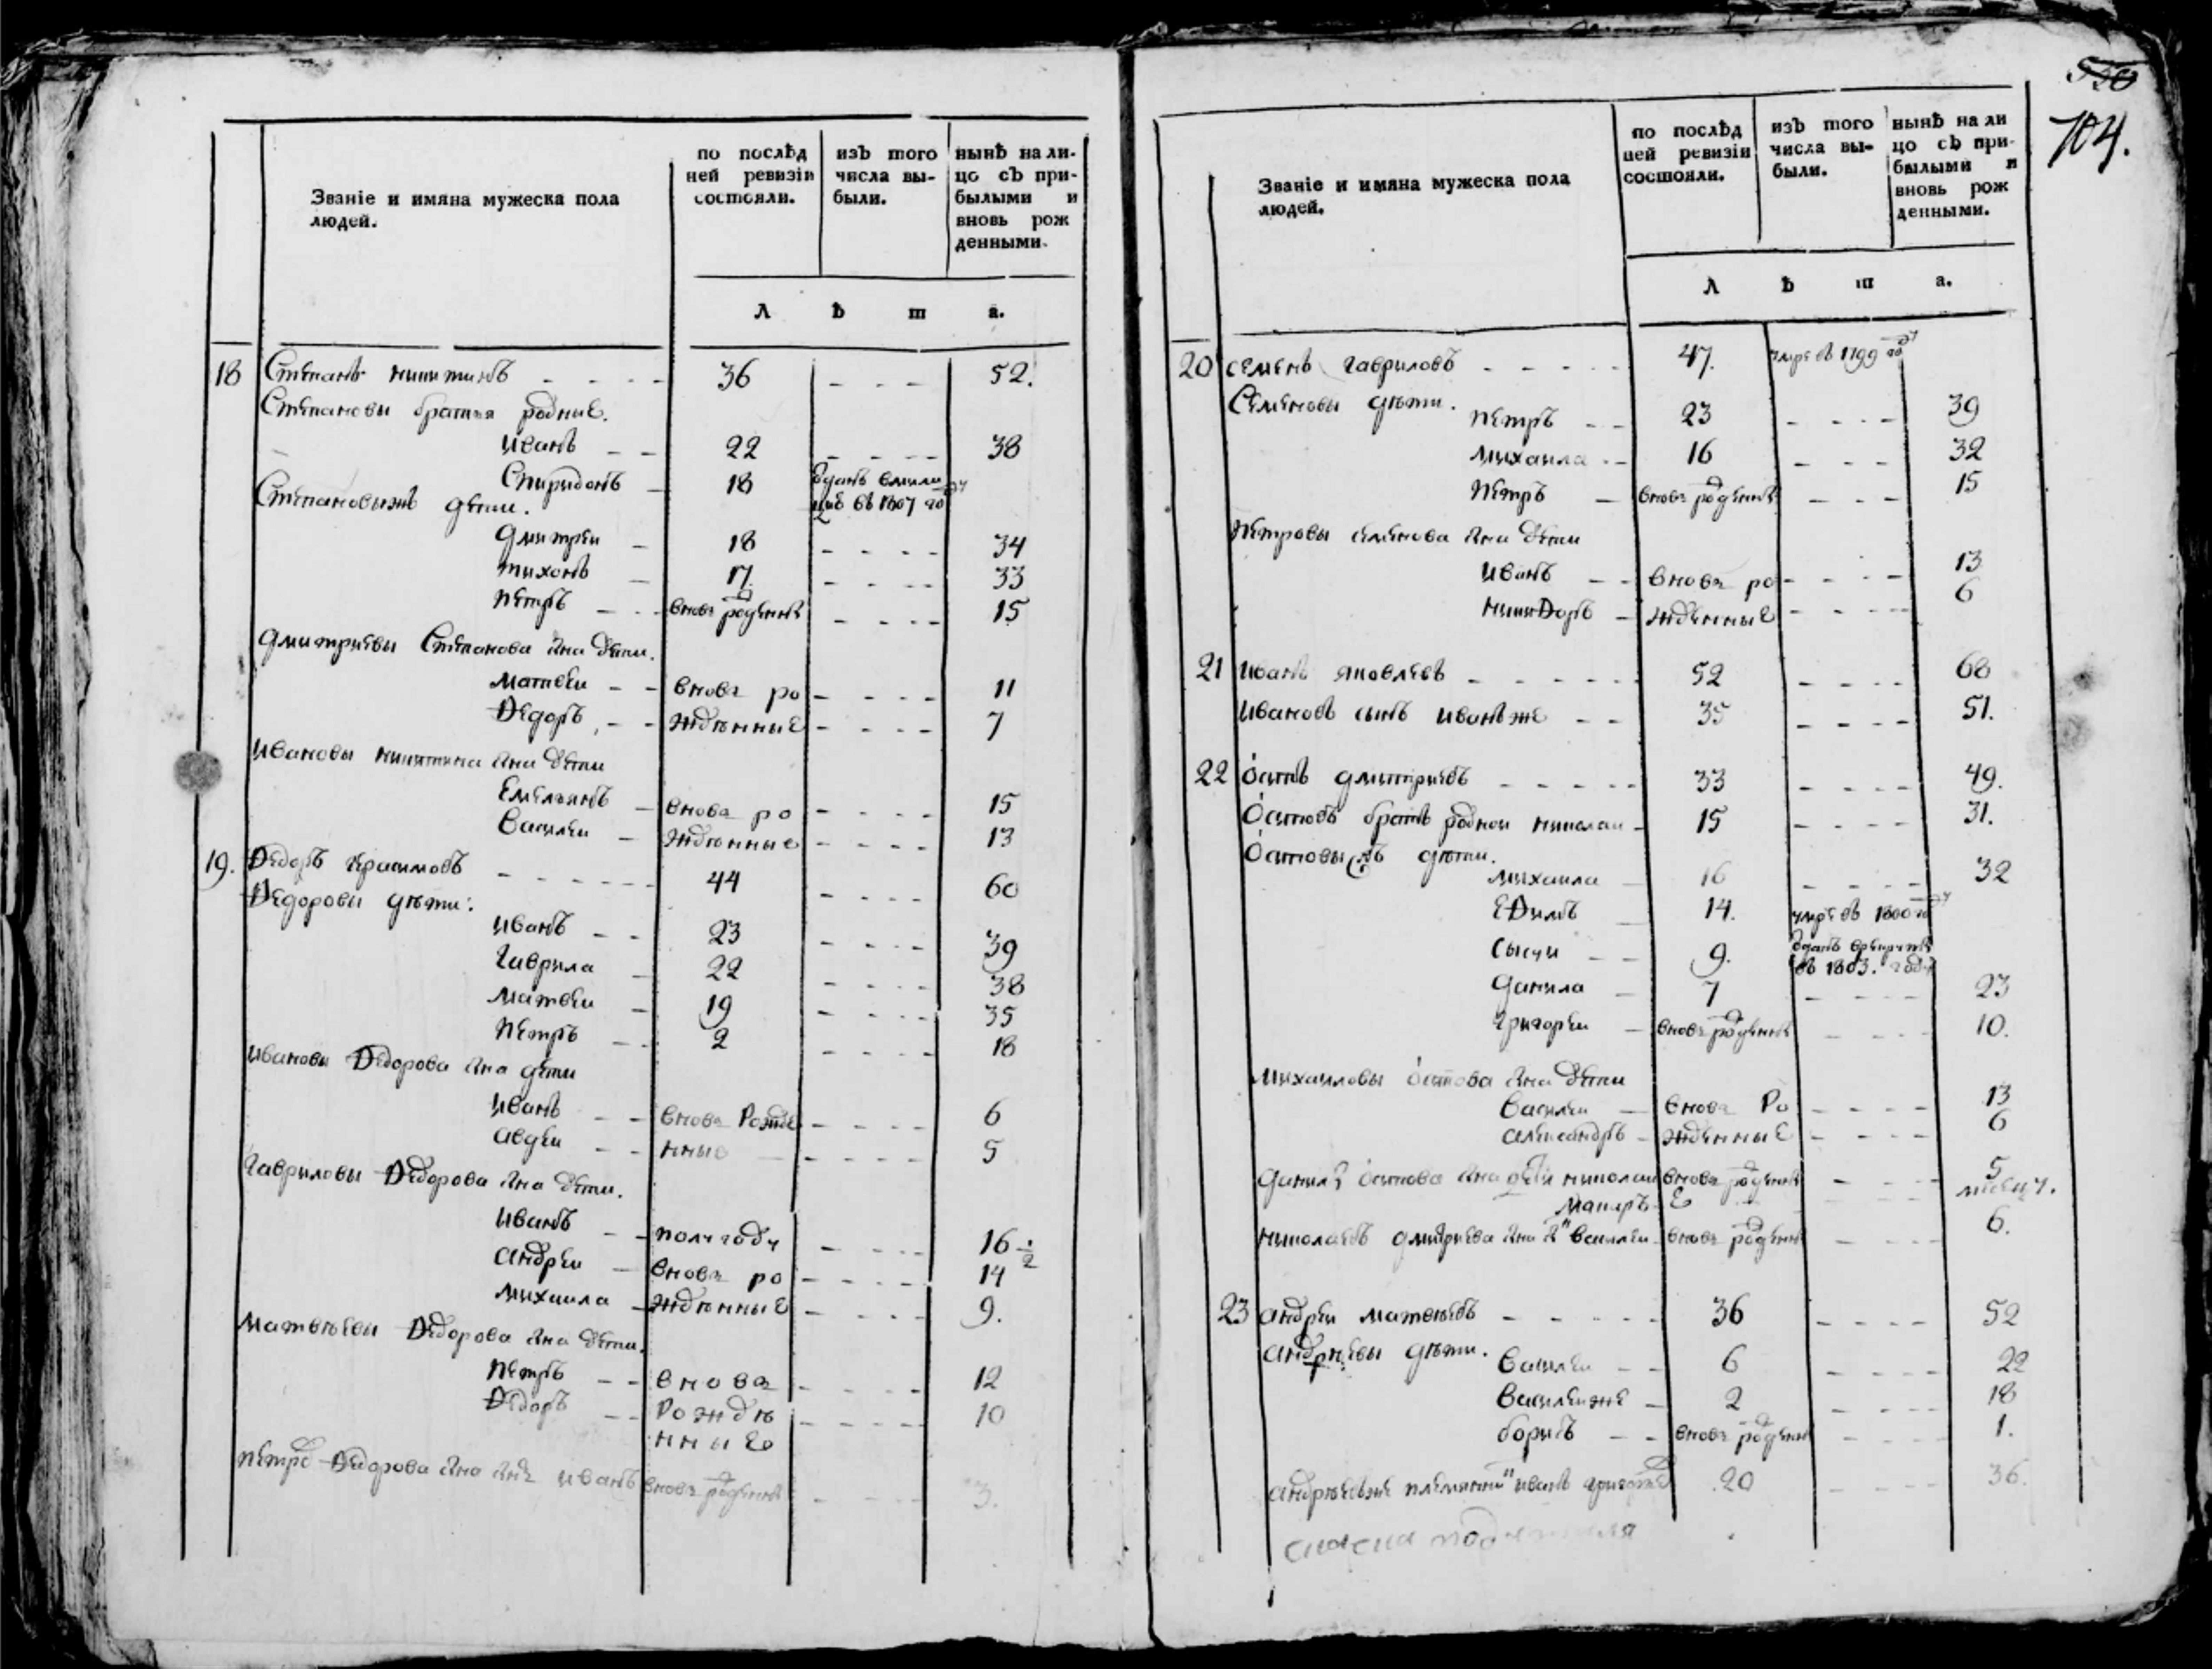 Званіе и имяна мужеска пола
людей.
по послѢд
ней ревизіи
состояли.
изЪ того
числа вы-
были.
нынѢ на ли-
цо сЪ при-
былыми и
вновь рож
денными.
Л Ѣ т а.
18 Степанъ никитинъ 36 - - - 52.
Степановы братья родные.
иванъ - - 22 - - - - 38
Спиридонъ - 18 отданъ в мили
цию въ 1807 го ду
Степановыжъ дети.
дмитреи - 18 - - - - 34
тихонъ - 17 - - - - 33
петръ - - вновь рожденъ - - - - 15
дмитриевы Степанова сна дети.
матвеи - - вновь ро - - - - 11
Ѳедоръ - - жденные - - - - 7
ивановы никитина сна дети
Емельянъ - вновь ро - - - - 15
Василеи - жденные - - - - 13
19. Ѳедоръ герасимовъ - - - - - - 44 - - - - 60
Ѳедоровы дѣти.
иванъ - - 23 - - - - 39
гаврила - 22 - - - - 38
матвеи - 19 - - - - 35
петръ - - 2 - - - - 18
ивановы Ѳедорова сна дети
иванъ - - вновь Рожде - - - - 6
авдеи - - нные - - - - 5
гавриловы Ѳедорова сна дети.
иванъ - - полугоду - - - - 16 1/2
андреи - вновь ро - - - - 14
михаила - жденные - - - - 9.
матвѣевы Ѳедорова сна дети.
петръ - - вновь - - - - 12
Ѳедоръ - - Рожде - - - - 10
нные
Ѳедорова сна иванъ вновь рожденъ - - - - 3.
550
704.
Званіе и имяна мужеска пола
людей.
по послѢд
ней ревизіи
состояли.
изЪ того
числа вы-
были.
нынѢ на ли
цо сЪ при-
былыми и
вновь рож
денными.
Л Ѣ т а.
20 семенъ гавриловъ - - - - - 47. умре въ 1799 го ду
Семеновы дѣти.
петръ - - 23 - - - - 39
михаила - - 16 - - - 32
петръ - вновь рожденъ - - - 15
петровы семенова сна дети
иванъ - - вновь ро - - - - 13
никиѲоръ - жденные - - - - 6
21 иванъ яковлевъ - - - - - - 52 - - - - 68
ивановъ сынъ иванъже - - 35 - - - - 51.
22 осипъ дмитриевъ - - - - - 33 - - - - 49.
осиповъ братъ роднои николаи - 15 - - - - 31.
осиповы дѣти.
михаила - 16 - - - - 32
еѲимъ - 14. умре въ 1800 го ду
сысои - - 9. отданъ в рекруты
въ 1803. году
данила - 7 - - - - 23
григореи - вновь рожденъ - - - - 10.
михаиловы осипова сна дети
василеи - вновь Ро - - - - 13
александръ - жденные - - - - 6
осипова сна дети николаи вновь рожденны - - - - 5
макаръ - е - - - месяц.
николаевъ дмитриева сна василеи - вновь рожденъ - - - - 6.
23 андреи матвѣевъ - - - - - 36 - - - - 52
андрѣевы дѣти.
василеи - - 6 - - - - 22
василеиже - 2 - - - - 18
борисъ - - вновь рожденъ - - - - 1.
андрѣевъже племянникъ иванъ 20 - - - - 36.